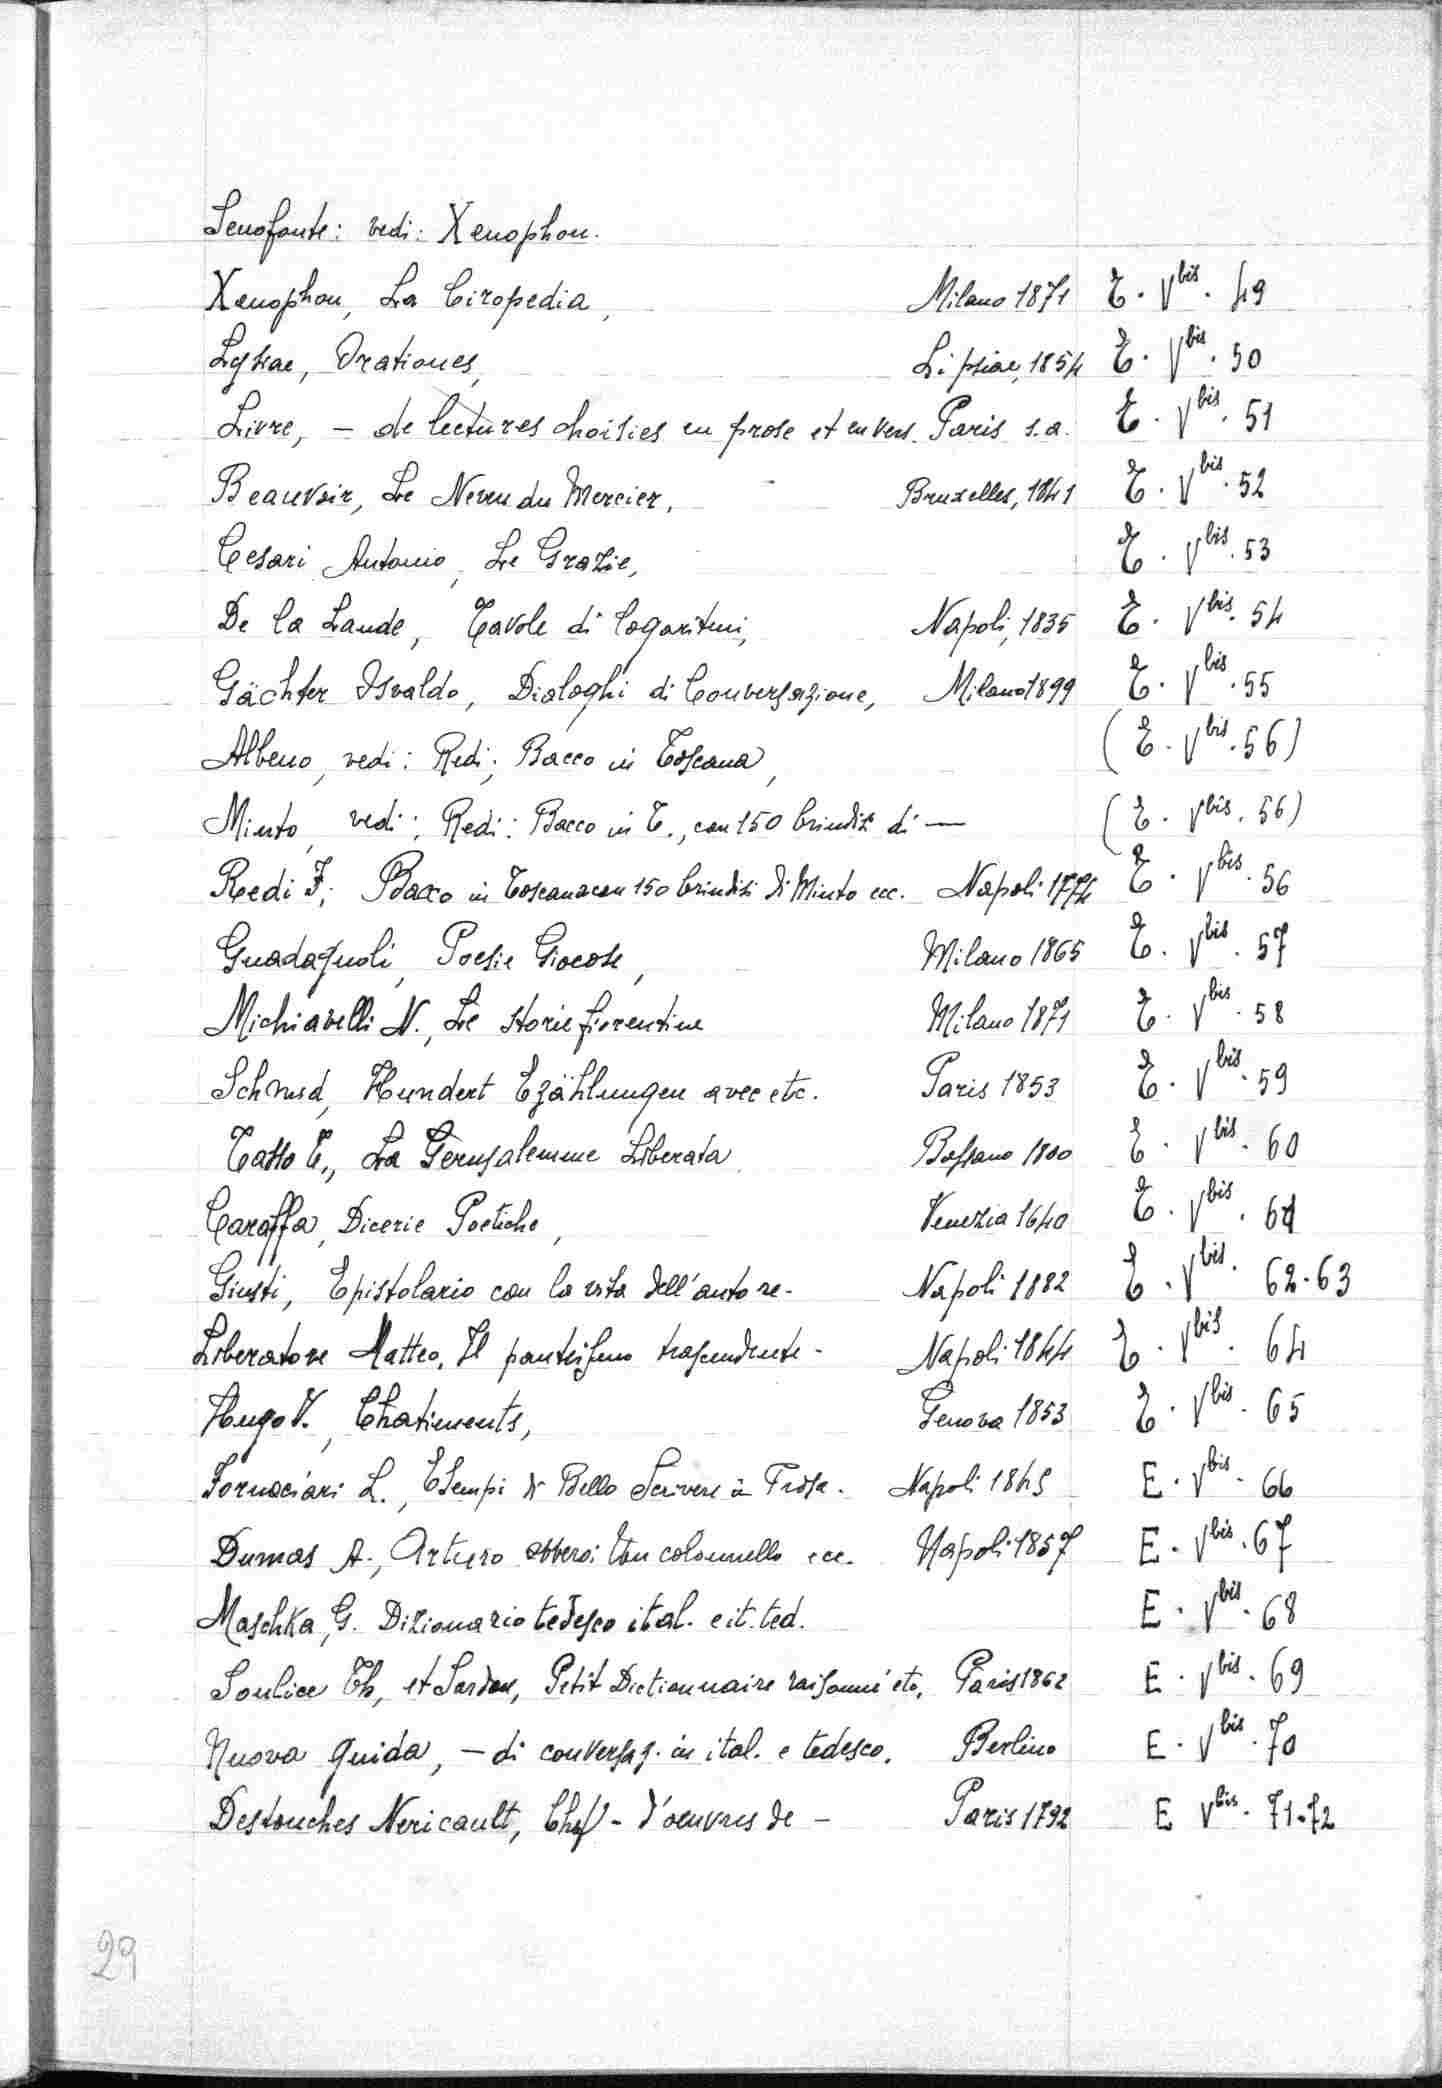 Senofonte: vedi: Xenophon.
Xenophon, La Ciropedia, Milano 1871 E. Vbis. 49
Lysiae, Orationes, Lipsiae, 1854 E. Vbis. 50
Livre, - de lectures choisies en prose et en vers. Paris s.a. E. Vbis. 51
Beauvoir, Le Neveu du Mercier, Bruxelles, 1841 E. Vbis. 52
Cesari Antonio, Le Grazie, E. Vbis. 53
De la Lande, Tavole di logaritmi, Napoli, 1835 E. Vbis. 54
Gächter Osvaldo, Dialoghi di Conversazione, Milano 1899 E. Vbis. 55
Albeno, vedi: Redi; Bacco in Toscana, (E. Vbis. 56)
Minto, vedi: Redi: Bacco in T., con 150 brindisi di — (E. Vbis. 56)
Redi F; Bacco in Toscana con 150 brindisi di Minto ecc. Napoli 1774 E. Vbis. 56
Guadagnoli, Poesie Giocose, Milano 1865 E. Vbis. 57
Michiavelli N., Le storie fiorentine Milano 1871 E. Vbis. 58
Schmid, Hundert Ezählungen avec etc. Paris 1853 E. Vbis. 59
Tasso T., La Gerusalemme Liberata Bassano 1800 E. Vbis. 60
Caraffa, Dicerie Poetiche, Venezia 1640 E. Vbis. 61
Giusti, Epistolario con la vita dell'autore - Napoli 1882 E. Vbis. 62-63
Liberatore Matteo, Il panteismo trascendente - Napoli 1844 E. Vbis. 64
Hugo V., Chatiments, Genova 1853 E. Vbis. 65
Fornaciari L., Esempi di Bello Scrivere in Prosa. Napoli 1845 E. Vbis. 66
Dumas A., Arturo ovvero: Un colonnello ecc. Napoli 1857 E. Vbis. 67
Maschka, G. Dizionario tedesco ital. e it. ted. E. Vbis. 68
Soulice Th, et Sardou, Petit Dictionnaire raisonné etc, Paris 1862 E. Vbis. 69
Nuova guida, - di conversaz. in ital. e tedesco. Berlino E. Vbis. 70
Destouches Nericault, Chef - d'oeuvres de - Paris 1792 E Vbis. 71-72
29